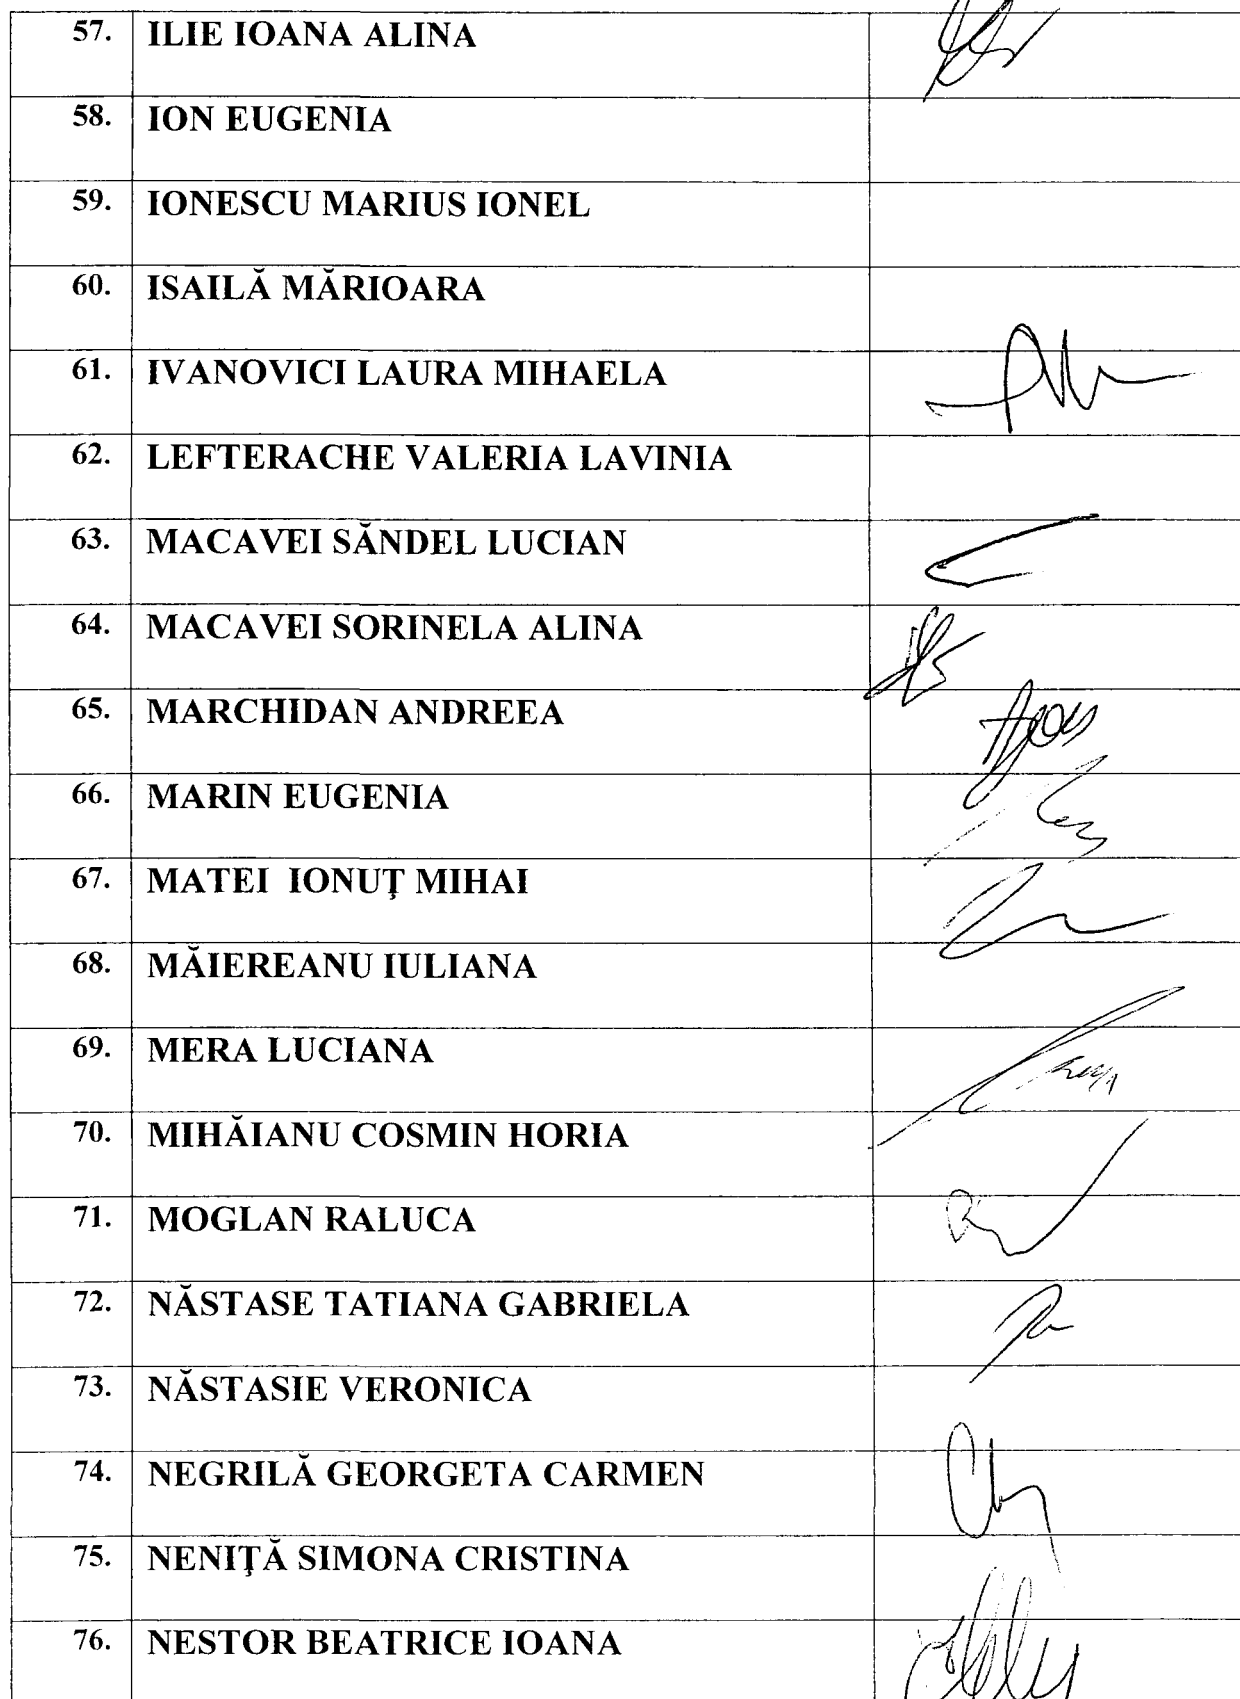 57. ILIE IOANA ALINA
58. ION EUGENIA
59. IONESCU MARIUS IONEL
60. ISAILĂ MĂRIOARA
61. IVANOVICI LAURA MIHAELA
62. LEFTERACHE VALERIA LAVINIA
63. MACAVEI SĂNDEL LUCIAN
64. MACAVEI SORINELA ALINA
65. MARCHIDAN ANDREEA
66. MARIN EUGENIA
67. MATEI IONUŢ MIHAI
68. MĂIEREANU IULIANA
69. MERA LUCIANA
70. MIHĂIANU COSMIN HORIA
71. MOGLAN RALUCA
72. NĂSTASE TATIANA GABRIELA
73. NĂSTASIE VERONICA
74. NEGRILĂ GEORGETA CARMEN
75. NENIŢĂ SIMONA CRISTINA
76. NESTOR BEATRICE IOANA